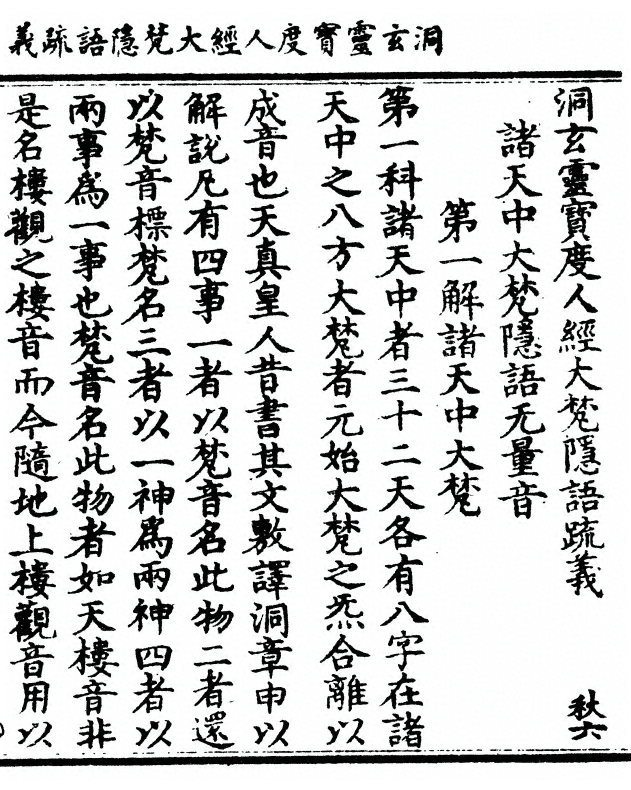 洞玄靈寶度人經大梵隱語䟽義
洞玄靈寶度人經大梵隱語䟽義
秋六
諸天中大梵隱語无量音
第一解諸天中大梵
第一科諸天中者三十二天各有八字在諸
天中之八方大梵者元始大梵之炁合離以
成音也天真皇人昔書其文敷譯洞章申以
解說凡有四事一者以梵音名此物二者還
以梵音標梵名三者以一神爲兩神四者以
兩事爲一事也梵音名此物者如天樓音非
是名樓觀之樓音而今隨地上樓觀音用以